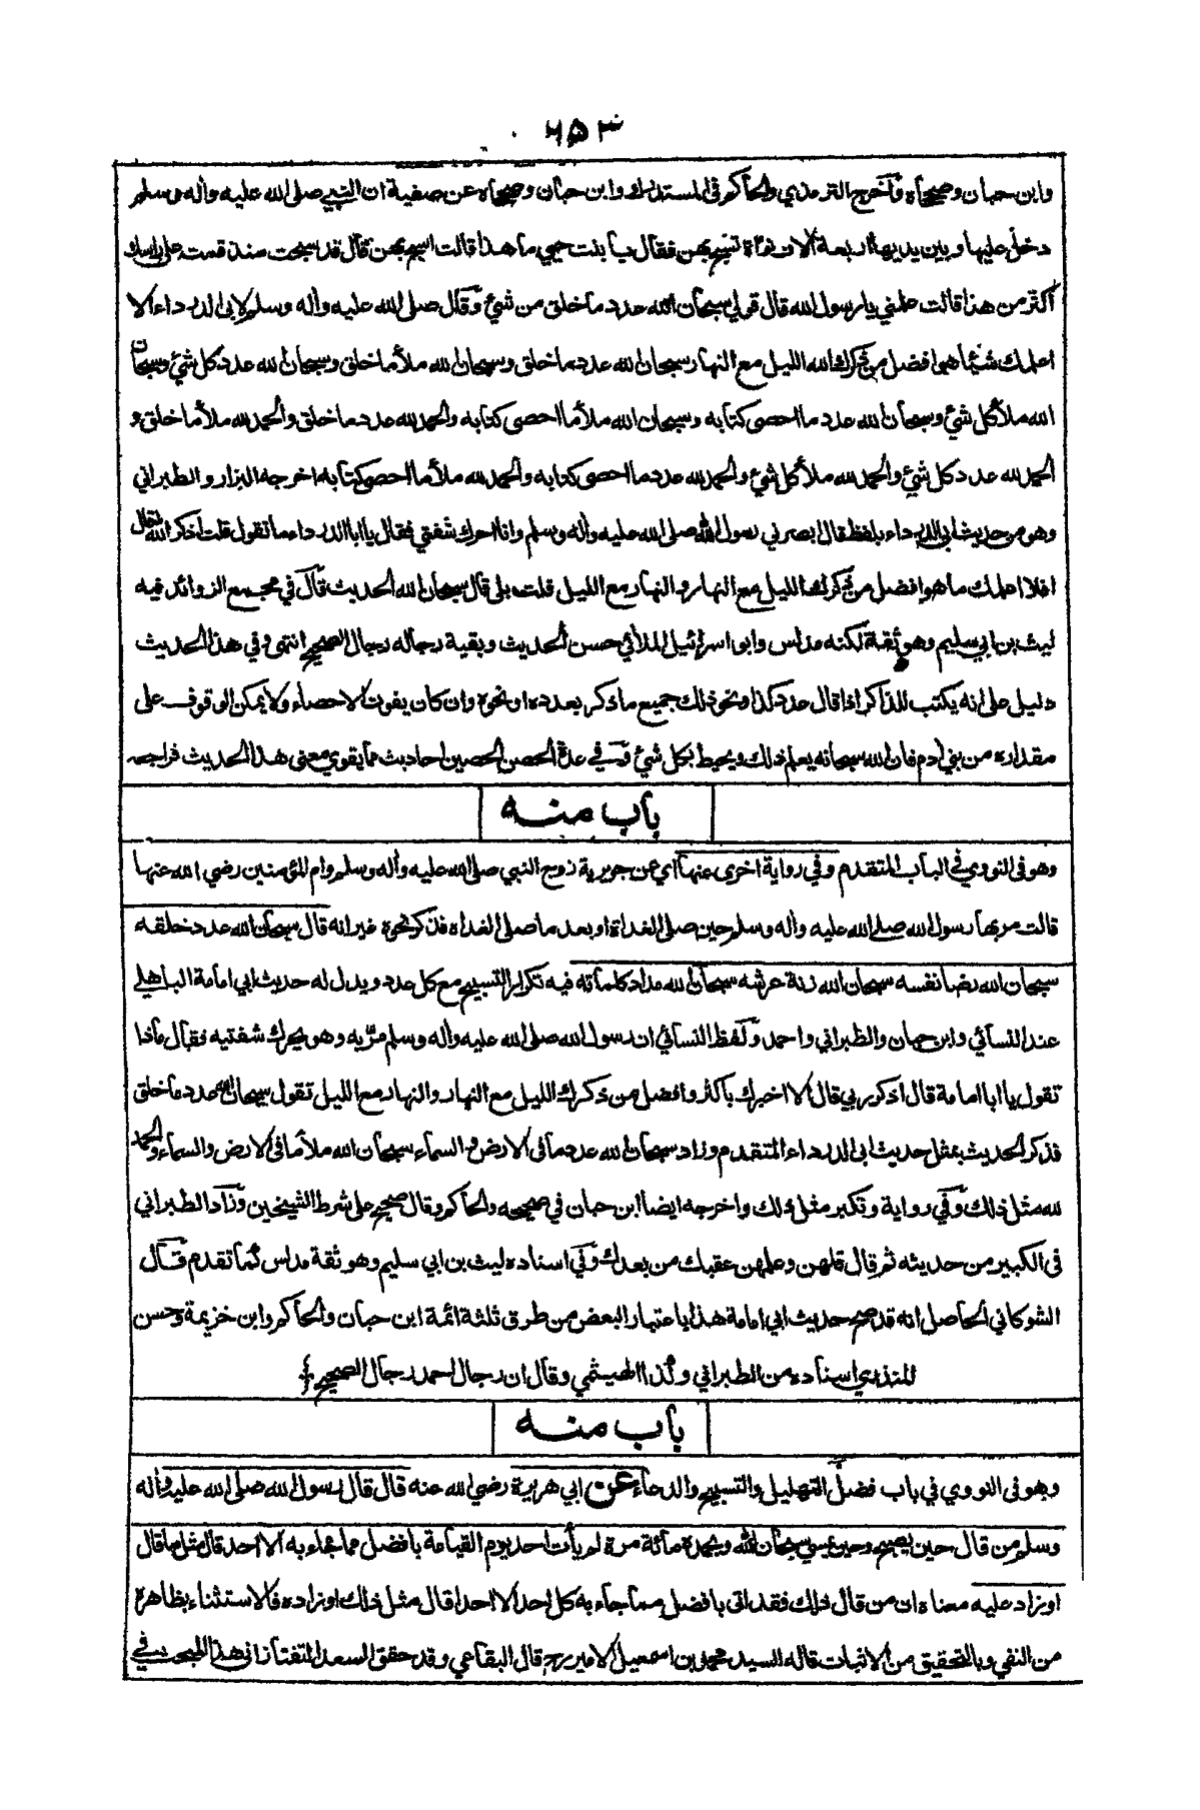 ٦٥٣
وابن حبان وصححاه وأخرج الترمذي والحاكم في المستدرك وابن حبان وصححاه عن صفية ان النبي صلى الله عليه واله وسلم
دخل عليها وبين يديها اربعة الاف نواة تسبح بهن فقال يا بنت حيي ما هذا قالت اسبح بهن قال قد سبحت منذ قمت على راسك
اكثر من هذا قالت علمني يا رسول الله قال قولي سبحان الله عدد ما خلق من شئ وقال صلى الله عليه واله وسلم لابي الدرداء الا
اعلمك شيئا هو افضل من ذكرك الله الليل مع النهار سبحان الله عدد ما خلق وسبحان الله ملأ ما خلق وسبحان الله عدد كل شئ وسبحان
الله ملأ كل شئ وسبحان الله عدد ما احصى كتابه وسبحان الله ملأ ما احصى كتابه والحمد لله عدد ما خلق والحمد لله ملأ ما خلق و
الحمد لله عدد كل شئ والحمد لله ملأ كل شئ والحمد لله عدد ما احصى كتابه والحمد لله ملأ ما احصى كتابه اخرجه البزار والطبراني
وهو من حديث ابي الدرداء بلفظ قال ابصرني رسول الله صلى الله عليه واله وسلم وانا احرك شفتي فقال يا ابا الدرداء ما تقول قلت اذكر الله قال
افلا اعلمك ما هو افضل من ذكرك الليل مع النهار والنهار مع الليل قلت بلى قال سبحان الله الحديث قال في مجمع الزوائد فيه
ليث بن ابي سليم وهو ثقة لكنه مدلس وابو اسرائيل الملائي حسن الحديث وبقية رجاله رجال الصحيح انتهى وفي هذا الحديث
دليل على انه يكتب للذاكر اذا قال عدد كذا ونحو ذلك جميع ما ذكر بعدده او نحوه وان كان يفوت الاحصاء ولا يمكن الوقوف على
مقداره من بني ادم فان الله سبحانه يعلم ذلك ويحيط بكل شئ وفي عدة الحصن الحصين احاديث مما يقوي معنى هذا الحديث فراجعه
باب منه
وهو في النووي في الباب المتقدم وفي رواية اخرى عنها اي عن جويرية زوج النبي صلى الله عليه واله وسلم وام المؤمنين رضي الله عنها
قالت مر بها رسول الله صلى الله عليه واله وسلم حين صلى الغداة او بعد ما صلى الغداة فذكر نحوه غير انه قال سبحان الله عدد خلقه
سبحان الله رضا نفسه سبحان الله زنة عرشه سبحان الله مداد كلماته فيه تكرار التسبيح مع كل عدد ويدل له حديث ابي امامة الباهلي
عند النسائي وابن حبان والطبراني واحمد ولفظ النسائي ان رسول الله صلى الله عليه واله وسلم مر به وهو يحرك شفتيه فقال ماذا
تقول يا ابا امامة قال اذكر ربي قال الا اخبرك باكثر وافضل من ذكرك الليل مع النهار والنهار مع الليل تقول سبحان الله عدد ما خلق
فذكر الحديث بمثل حديث ابي الدرداء المتقدم وزاد سبحان الله عدد ما في الارض والسماء سبحان الله ملأ ما في الارض والسماء والحمد
لله مثل ذلك وفي رواية وتكبر مثل ذلك واخرجه ايضا ابن حبان في صحيحه والحاكم وقال صحيح على شرط الشيخين وزاد الطبراني
في الكبير من حديثه ثم قال قلهن وعلمهن عقبك من بعدك وفي اسناده ليث بن ابي سليم وهو ثقة مدلس كما تقدم قال
الشوكاني الحاصل انه قد صح حديث ابي امامة هذا باعتبار البعض من طرق ثلثة ائمة ابن حبان والحاكم وابن خزيمة وحسن
المنذري اسناده من الطبراني وكذا الهيثمي وقال ان رجال احمد رجال الصحيح
باب منه
وهو في النووي في باب فضل التهليل والتسبيح والدعاء عن ابي هريرة رضي الله عنه قال قال رسول الله صلى الله عليه واله
وسلم من قال حين يصبح وحين يمسي سبحان الله وبحمده مائة مرة لم يأت احد يوم القيامة بافضل مما جاء به الا احد قال مثل ما قال
او زاد عليه معناه ان من قال ذلك فقد اتى بافضل مما جاء به كل احد الا احدا قال مثل ذلك او زاده فالاستثناء بظاهره
من النفي وبالتحقيق من الاثبات قاله السيد محمد بن اسمعيل الامير رح قال البقاعي وقد حقق السعد التفتازاني هذا المبحث في